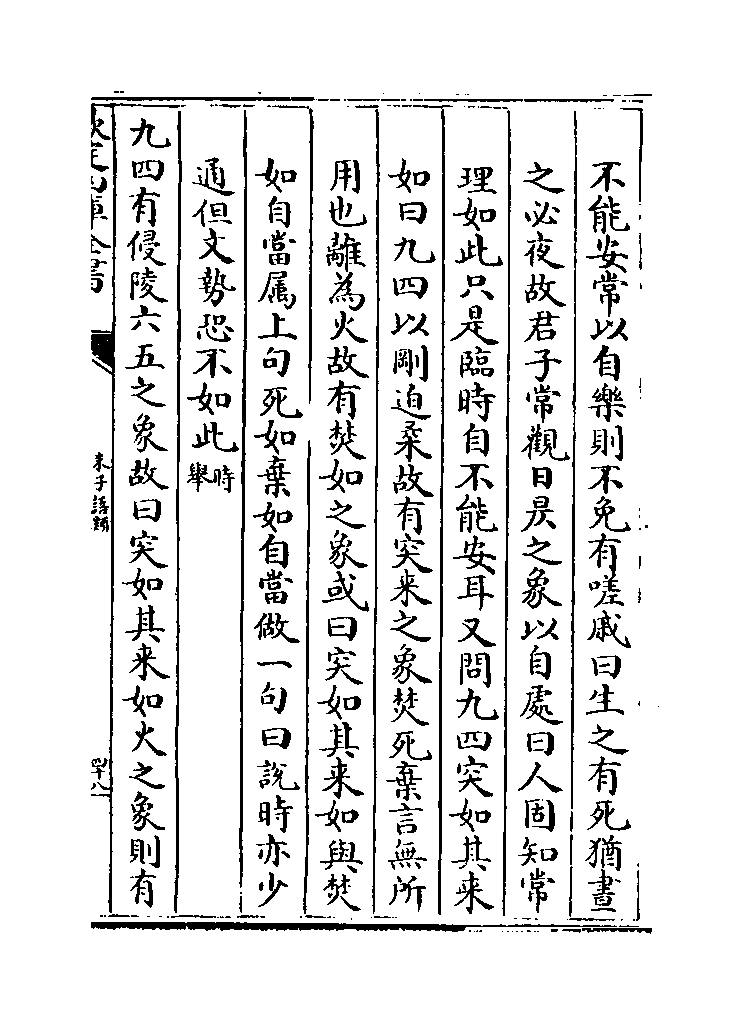 不能安常以自樂則不免有嗟戚曰生之有死猶晝
之必夜故君子常觀日昃之象以自處曰人固知常
理如此只是臨時自不能安耳又問九四突如其来
如曰九四以剛迫柔故有突来之象焚死棄言無所
用也離為火故有焚如之象或曰突如其来如與焚
如自當属上句死如棄如自當做一句曰說時亦少
通但文勢恐不如此時舉
九四有侵陵六五之象故曰突如其来如火之象則有
欽定四庫全書
朱子語類
四十八